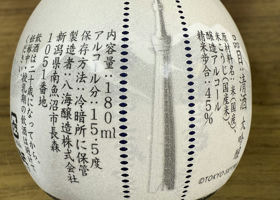 日本清酒 大吟醸
原材料名:米(国産)、
米こうじ(国産米)、
醸造アルコール
精米歩合:45%
内容量:180ml
アルコール分:15.5度
保存方法:冷暗所に保管
製造者:八海醸造株式会社
新潟県南魚沼市長森
1051番地
飲酒は二十歳になってから。
©TOKYO-SKY